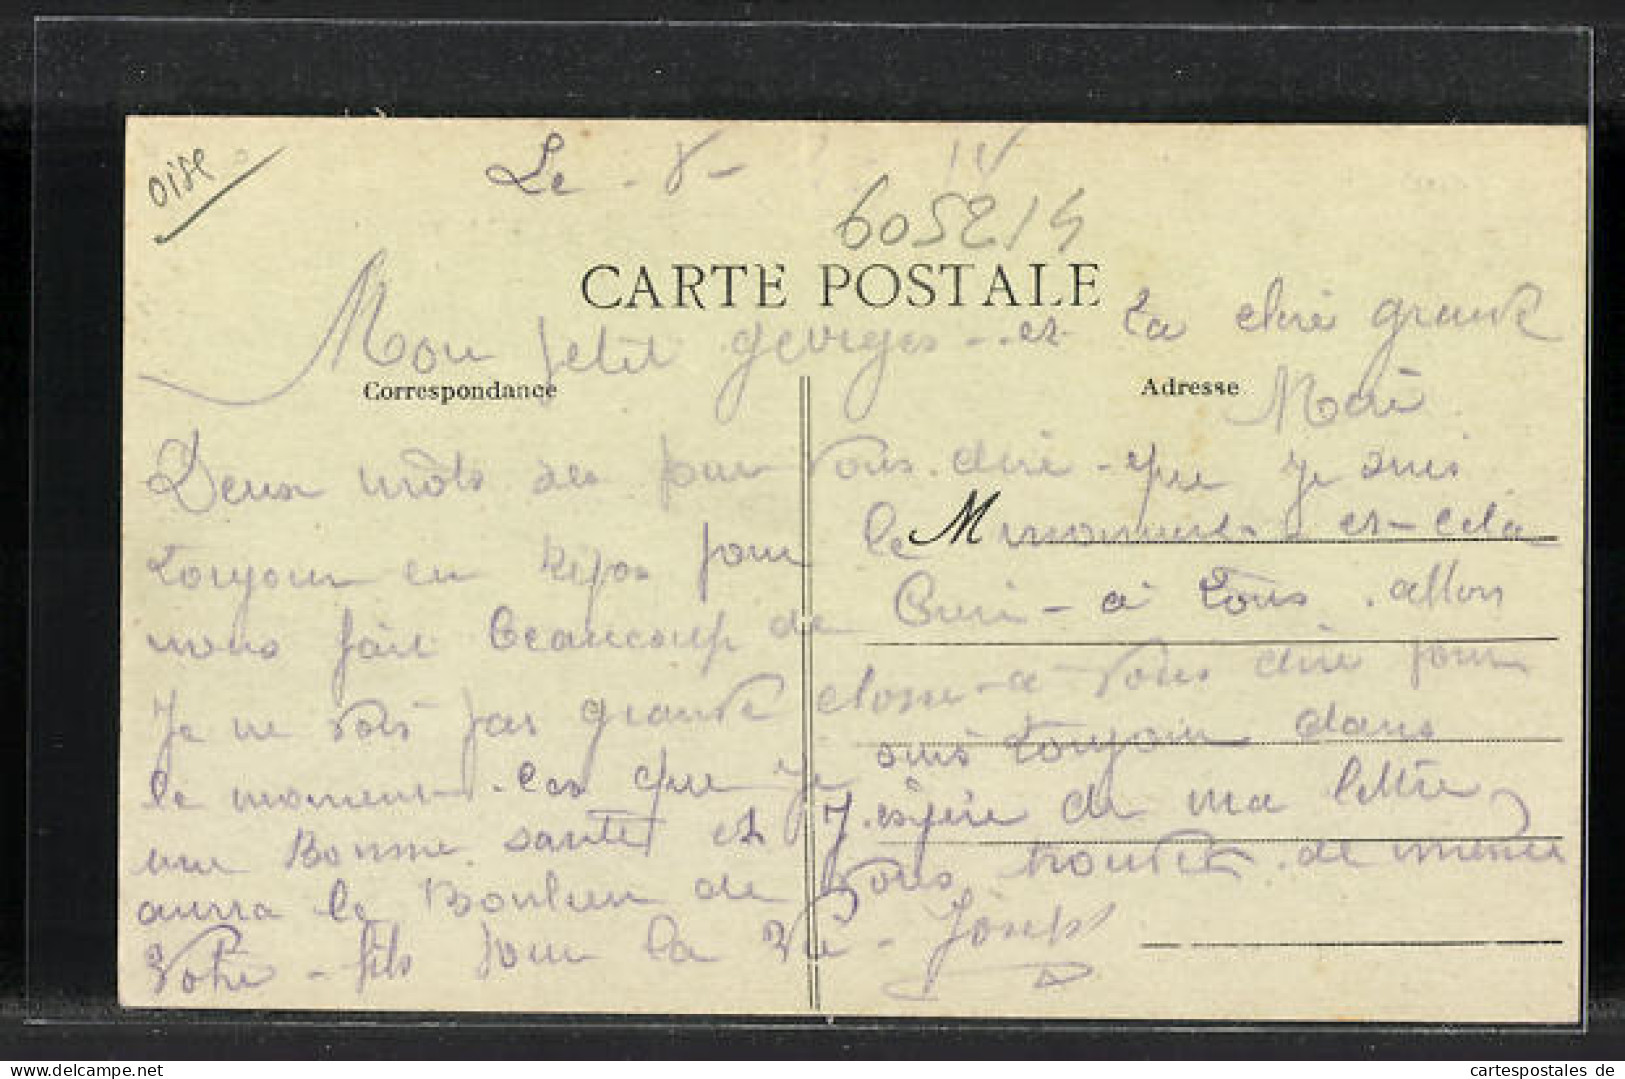 oise
Le - 8 -
605214
CARTE POSTALE
Mon petit georges et la chere grand
Correspondance
Adresse
Mere
Deux mots pour vous dire - que je suis
toujour en repos pour le M moment et cela
nous fait beaucoup de Bien - a tous . allon
Je ne vois pas grand chosse a vous dire pour
le moment . que je suis toujour dans
une Bonne santé et J'espère de ma lettre
aurra le Bonheur de vous trouver de meme
Votre - fils pour la vie - Joseph
https://www.delcampe.net
cartespostales de